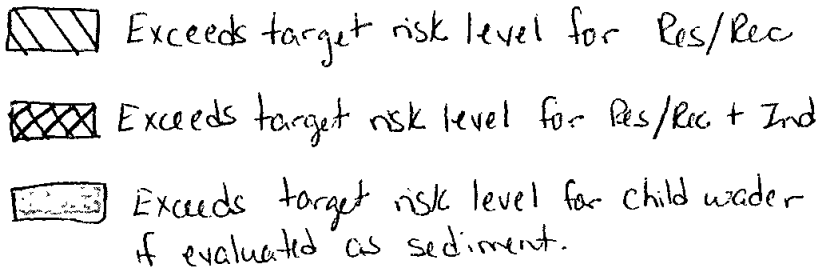 Exceeds target risk level for Res/Rec
Exceeds target risk level for Res/Rec + Ind
Exceeds target risk level for child wader
if evaluated as sediment.